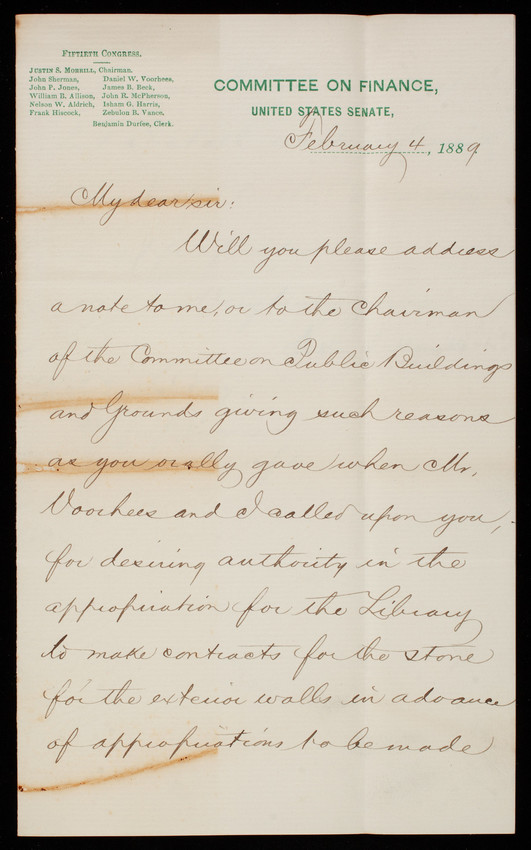 FIFTIETH CONGRESS.
JUSTIN S. MORRILL, Chairman.
John Sherman, Daniel W. Voorhees,
John P. Jones, James B. Beck,
William B. Allison, John R. McPherson,
Nelson W. Aldrich, Isham G. Harris,
Frank Hiscock, Zebulon B. Vance,
Benjamin Durfee, Clerk.
COMMITTEE ON FINANCE,
UNITED STATES SENATE,
February 4, 1889.
My dear sir:
Will you please address
a note to me, or to the Chairman
of the Committee on Public Buildings
and Grounds giving such reasons
as you orally gave when Mr.
Voorhees and I called upon you,
for desiring authority in the
appropriation for the Library
to make contracts for the stone
for the exterior walls in advance
of appropriations to be made